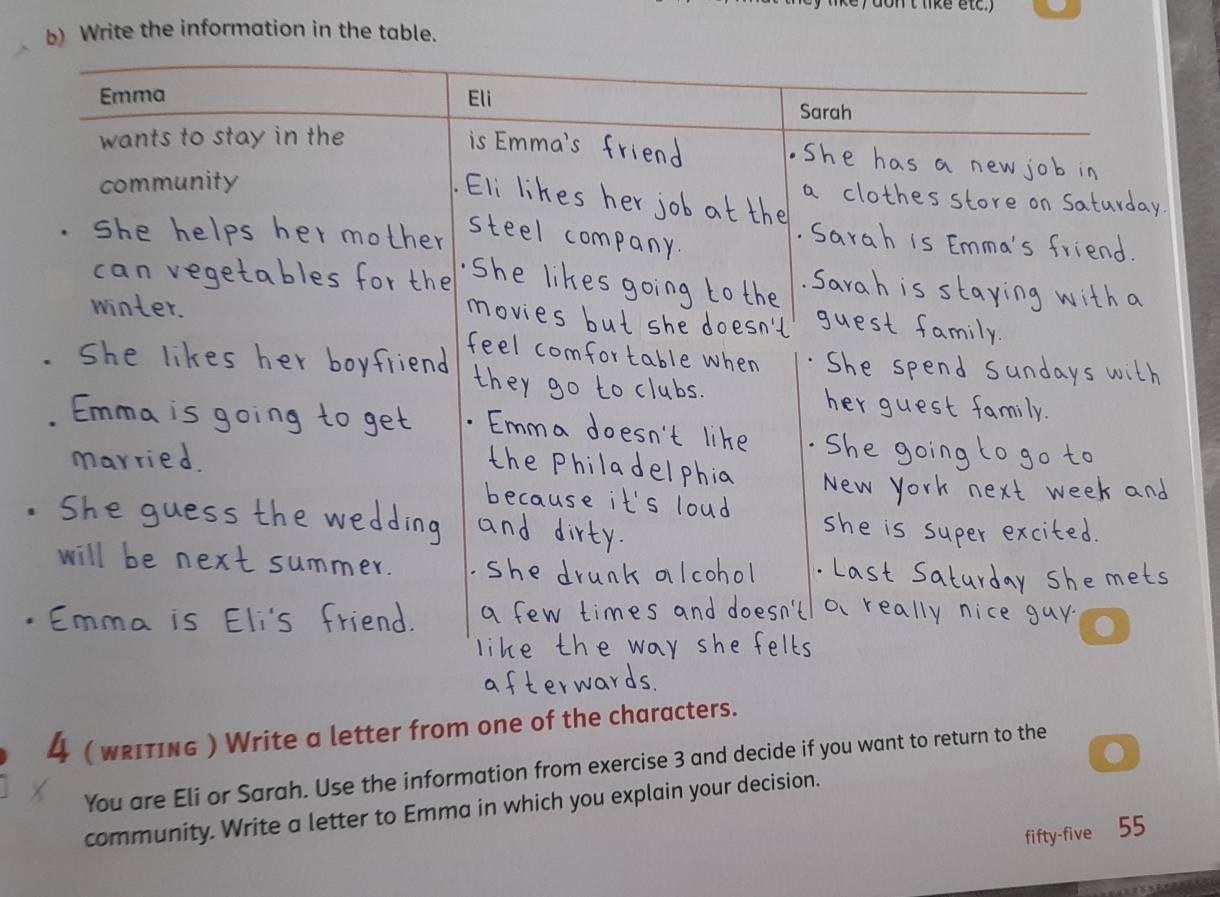 they like / don't like etc.)
b) Write the information in the table.
Emma
wants to stay in the
community
. She helps her mother
can vegetables for the
winter.
. She likes her boyfriend
. Emma is going to get
married.
. She guess the wedding
will be next summer.
. Emma is Eli's friend.
Eli
is Emma's friend
. Eli likes her job at the
steel company.
. She likes going to the
movies but she doesn't
feel comfortable when
they go to clubs.
. Emma doesn't like
the Philadelphia
because it's loud
and dirty.
. She drunk alcohol
a few times and doesn't
like the way she felts
afterwards.
Sarah
. She has a new job in
a clothes store on Saturday.
. Sarah is Emma's friend.
. Sarah is staying with a
guest family.
. She spend Sundays with
her guest family.
. She going to go to
New York next week and
she is super excited.
. Last Saturday she mets
a really nice guy.
4 ( WRITING ) Write a letter from one of the characters.
You are Eli or Sarah. Use the information from exercise 3 and decide if you want to return to the
community. Write a letter to Emma in which you explain your decision.
fifty-five 55